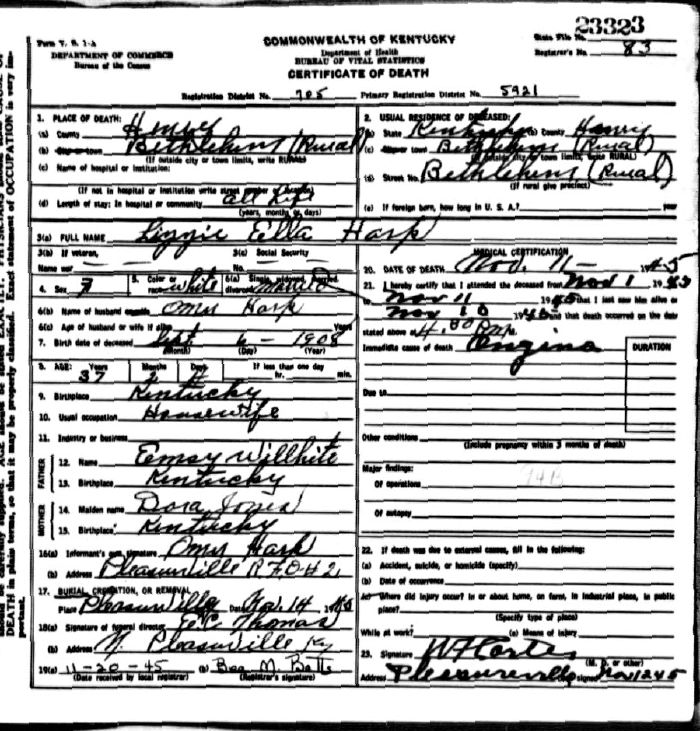 23323
Form V. S. 1-A
COMMONWEALTH OF KENTUCKY
State File No.
DEPARTMENT OF COMMERCE
Department of Health
Registrar's No. 83
Bureau of the Census
BUREAU OF VITAL STATISTICS
CERTIFICATE OF DEATH
Registration District No. 705 Primary Registration District No. 5921
1. PLACE OF DEATH:
(a) County Henry
(b) City or town Bethlehem (Rural)
(If outside city or town limits, write RURAL)
(c) Name of hospital or institution:
(If not in hospital or institution write street number or location)
(d) Length of stay: In hospital or community all life
(years, months or days)
2. USUAL RESIDENCE OF DECEASED:
(a) State Kentucky (b) County Henry
(c) City or town Bethlehem (Rural)
(If outside city or town limits, write RURAL)
(d) Street No. Bethlehem (Rural)
(If rural give precinct)
(e) If foreign born, how long in U. S. A.? year
3(a) FULL NAME Lizzie Ella Harp
3(b) If veteran, 3(c) Social Security
Name war No.
4. Sex 7 5. Color or race white 6(a) Single, widowed, married, divorced married
6(b) Name of husband or wife Omer Harp
6(c) Age of husband or wife if alive Years
7. Birth date of deceased Sept 6 - 1908
(Month) (Day) (Year)
8. AGE: Years Months Days If less than one day
37 2 hr. min.
9. Birthplace Kentucky
10. Usual occupation Housewife
11. Industry or business
FATHER
12. Name Emsy Willhite
13. Birthplace Kentucky
MOTHER
14. Maiden name Dora Jones
15. Birthplace Kentucky
16(a) Informant's own signature Omer Harp
(b) Address Pleasureville R.F.D #2
17. BURIAL, CREMATION, OR REMOVAL
Place Pleasureville Date Nov. 14 1945
18(a) Signature of funeral director E.C. Thomas
(b) Address N. Pleasureville Ky
19(a) 11-20-45 (b) Bea M. Batts
(Date received by local registrar) (Registrar's signature)
MEDICAL CERTIFICATION
20. DATE OF DEATH Nov. 11 - 1945
21. I hereby certify that I attended the deceased from Nov 1 1945
to Nov 11 1945 that I last saw him alive on
Nov 10 1945 and that death occurred on the date
stated above at 4.00 P.m.
Immediate cause of death Angina
DURATION
Due to
Other conditions
(Include pregnancy within 3 months of death)
Major findings:
94B
Of operations
Of autopsy
22. If death was due to external causes, fill in the following:
(a) Accident, suicide, or homicide (specify)
(b) Date of occurrence
(c) Where did injury occur? In or about home, on farm, in industrial place, in public
place?
(Specify type of place)
While at work? (e) Means of injury
23. Signature
(M. D. or other)
Address Pleasureville signed Nov 12 45
DEATH in plain terms, so that it may be properly classified. Exact statement of OCCUPATION is very important.